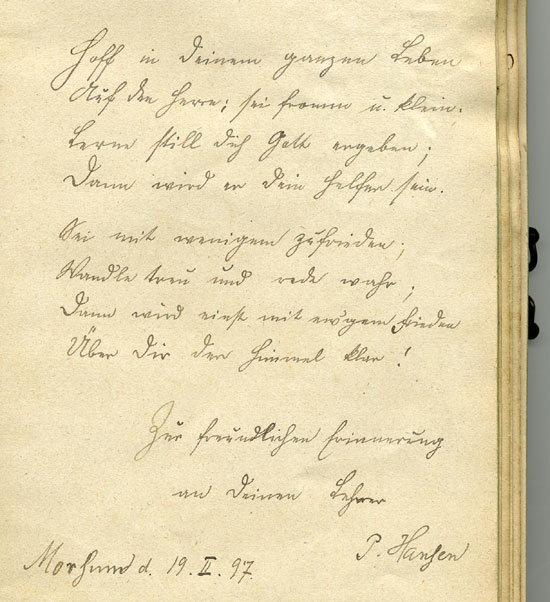 Hoff in Deinem ganzen Leben
Auf den Herrn; sei fromm u. klein;
Lerne still dich Gott ergeben;
Dann wird er Dein Helfer sein.
Sei mit wenigem zufrieden;
Wandle treu und rede wahr;
Dann wird einst mit ew'gem Frieden
Über Dir der Himmel klar!
Zur freundlichen Erinnerung
an Deinen Lehrer
P. Hansen
Morsum d. 19. II. 97.